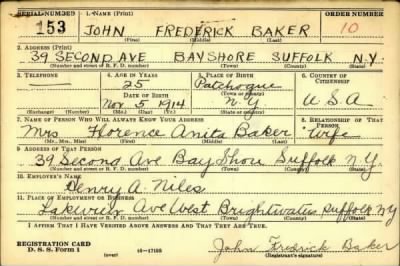 SERIAL NUMBER 1. NAME (Print) ORDER NUMBER
153 JOHN FREDERICK BAKER 10
(First) (Middle) (Last)
2. ADDRESS (Print)
39 SECOND AVE BAYSHORE SUFFOLK N.Y.
(Number and street or R. F. D. number) (Town) (County) (State)
3. TELEPHONE 4. AGE IN YEARS 5. PLACE OF BIRTH 6. COUNTRY OF CITIZENSHIP
— 25 Patchogue
DATE OF BIRTH (Town or county)
Nov 5 1914 N Y U.S.A
(Exchange) (Number) (Mo.) (Day) (Yr.) (State or country)
7. NAME OF PERSON WHO WILL ALWAYS KNOW YOUR ADDRESS 8. RELATIONSHIP OF THAT PERSON
Mrs Florence Anita Baker Wife
(Mr., Mrs., Miss) (First) (Middle) (Last)
9. ADDRESS OF THAT PERSON
39 Second Ave Bay Shore Suffolk N.Y.
(Number and street or R. F. D. number) (Town) (County) (State)
10. EMPLOYER'S NAME
Henry A. Niles
11. PLACE OF EMPLOYMENT OR BUSINESS
Lakeview Ave West Brightwaters Suffolk NY
(Number and street or R. F. D. number) (Town) (County) (State)
I AFFIRM THAT I HAVE VERIFIED ABOVE ANSWERS AND THAT THEY ARE TRUE.
REGISTRATION CARD
D. S. S. Form 1 (over) 16—17105 John Fredrick Baker
(Registrant's signature)